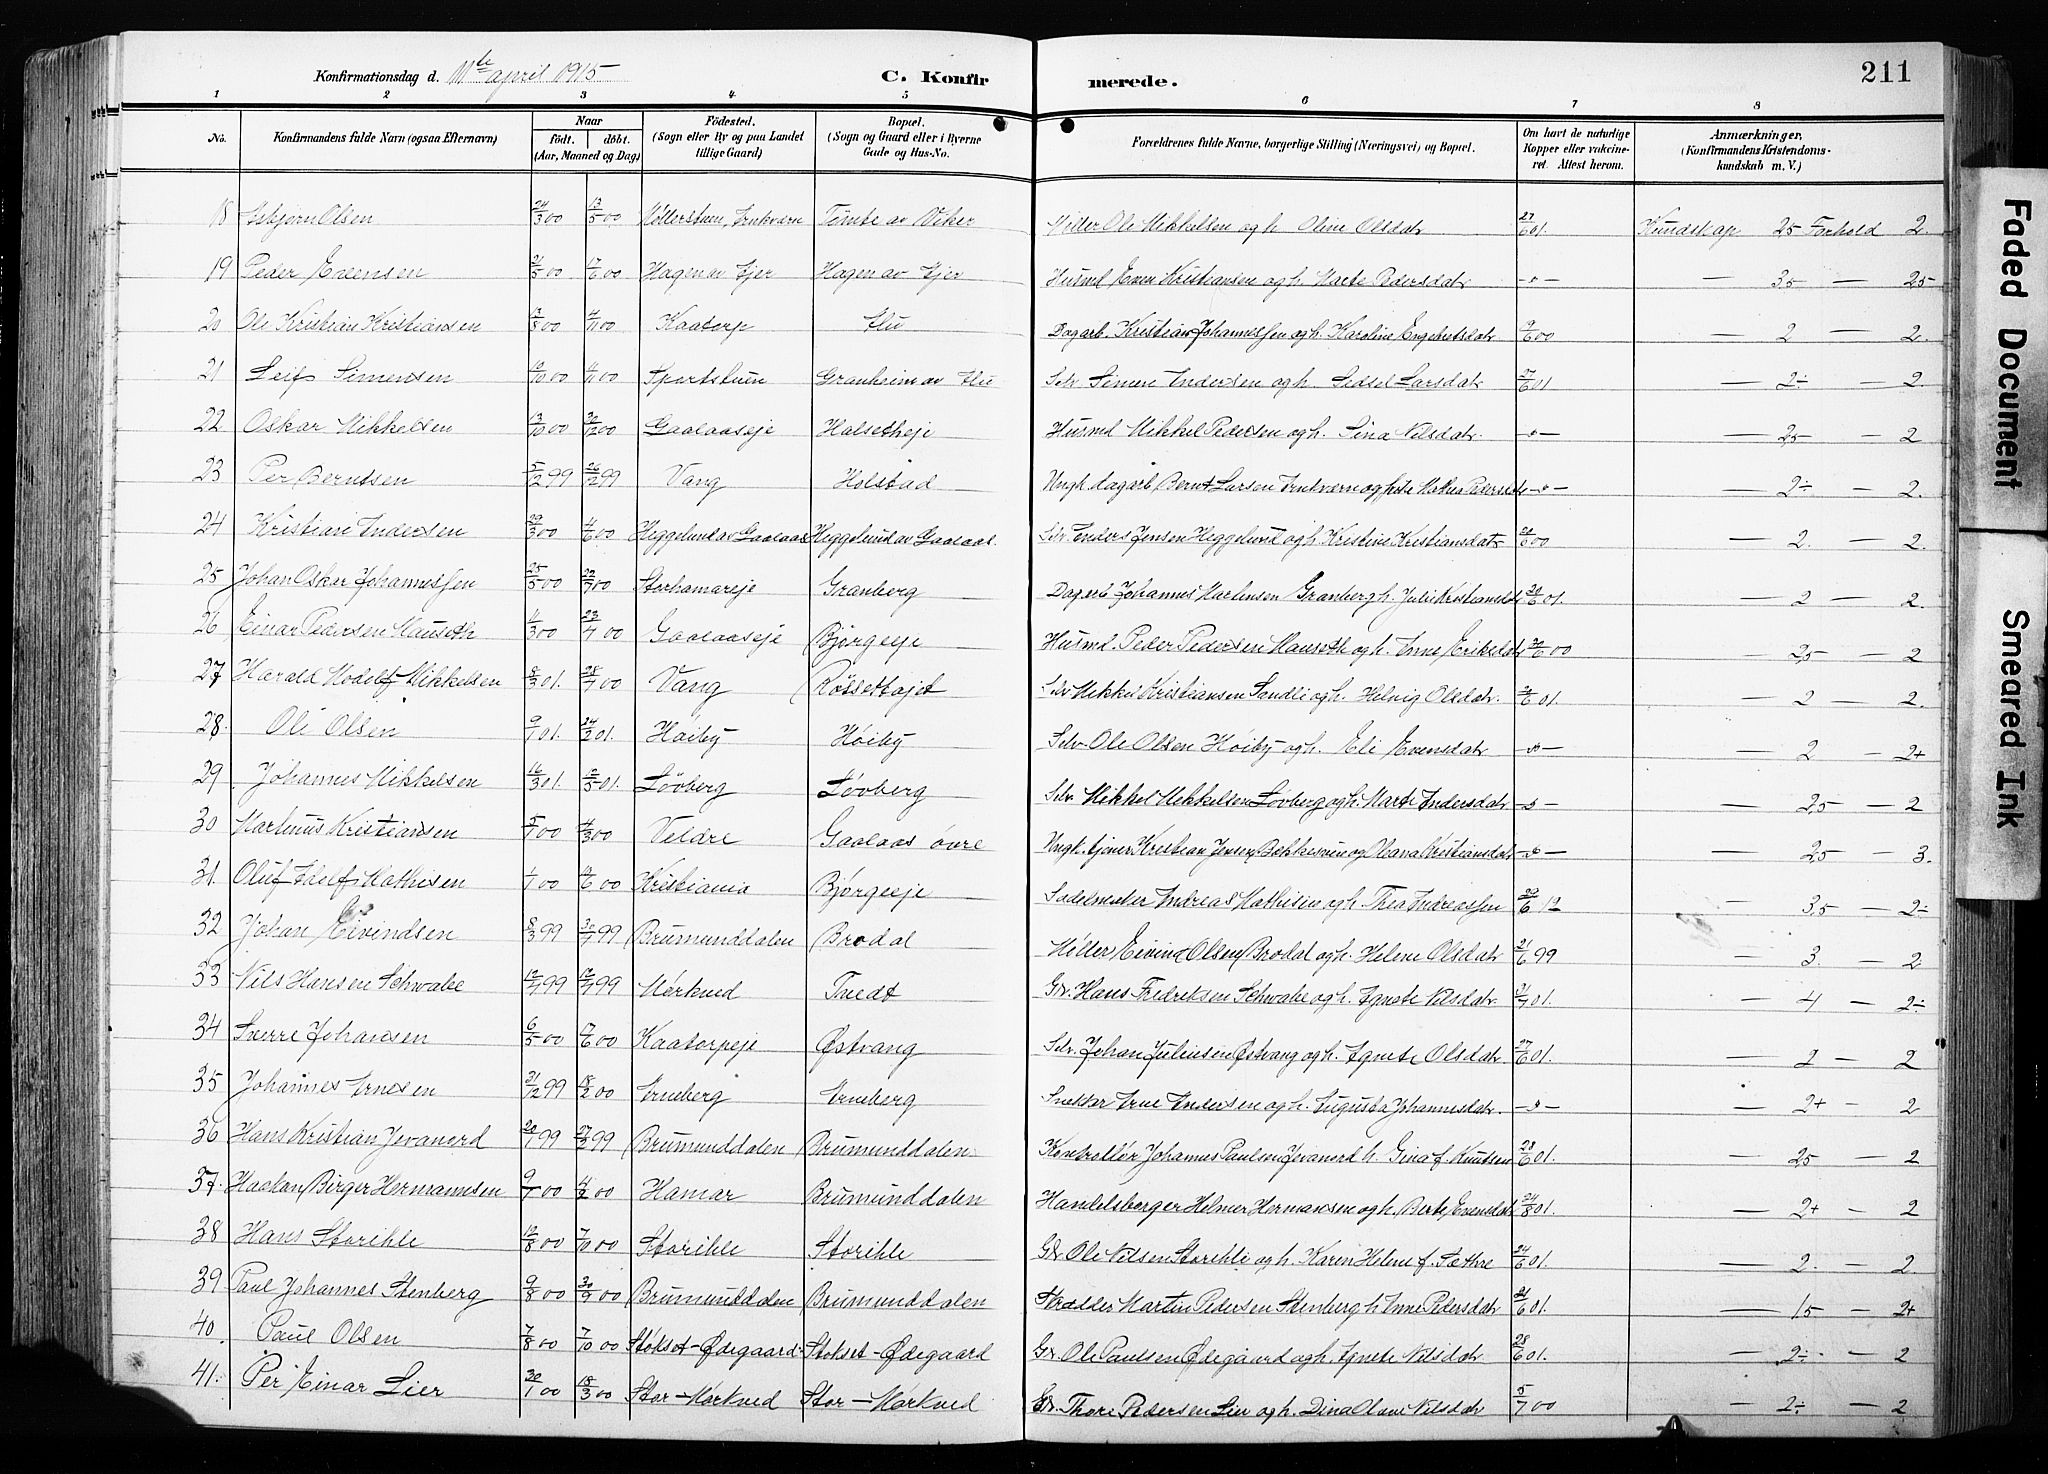 Konfirmationsdag d. 11te april 1915 C. Konfir merede. 211
1 2 3 4 5 6 7 8
No. Konfirmandens fulde Navn (ogsaa Efternavn) Naar födt. döbt. (Aar, Maaned og Dag) Födested. (Sogn eller By og paa Landet tillige Gaard) Bopæl. (Sogn og Gaard eller i Byerne Gade og Hus-No. Forældrenes fulde Navne, borgerlige Stilling (Næringsvei) og Bopæl. Om havt de naturlige Kopper eller vakcineret. Attest herom. Anmærkninger, (Konfirmandens Kristendomskundskab m. V.)
18 Asbjørn Olsen 24/3 00 13/5 00 Møllerstuen, Arnkværn Tomte av Viker Møller Ole Mikkelsen og h. Oline Olsdatr 27/6 01. Kundskap 25 Forhold 2.
19 Peder Evensen 21/5 00 17/6 00 Hagen av Tjer Hagen av Tjer Husmd Even Kristiansen og h. Marte Pedersdatr -"- — 35 — 25
20 Ole Kristian Kristiansen /8 00 4/11 00 Kaatorp Alu Dagarb. Kristian Johannessen og h. Karoline Engebretsdatr 9/6 00 — 2 — 2.
21 Leif Simensen 10/10 00 4/11 00 Sportstuen Granheim av Alu Selv. Simen Andersen og h. Sidsel Larsdatr 27/6 01 — 2÷ — 2.
22 Oskar Mikkelsen 13/10 00 30/12 00 Gaalaaseje Halsetheje Husmd Mikkel Pedersen og h. Sina Nilsdatr. -"- — 25 — 2
23 Per Berntsen 5/12 99 26/12 99 Vang Holstad Ungk. dagarb Bernt Larsen Arnkværn og Pedersdtr -"- — 2÷ — 2.
24 Kristian Andersen 29/3 00 4/6 00 Heggelund av Gaalaas Heggelund av Gaalaas. Selv. Anders Jensen Heggelund og h. Kristine Kristiansdatr /6 00 — 2. — 2.
25 Johan Oskar Johannessen 25/5 00 22/7 00 Storhamareje Granberg Dagarb Johannes Martinsen Granberg h. Julie Kristiansdtr 20/6 01. — 2 — 2.
26 Einar Pedersen Mauseth 11/3 00 23/4 00 Gaalaaseje Bjørgeeje Husmd. Peder Pedersen Mauseth og h. Anne Eriksdatr /6 00 — 2,5 — 2
27 Harald Hodolf Mikkelsen 8/3 01. 28/4 00 Vang Røssettøjet Selv Mikkel Kristiansen Sandli og h. Helvig Olsdatr. /6 01. — 2 — 2.
28. Ole Olsen 9/1 01. 24/2 01. Høiby Høiby Selv Ole Olsen Høiby og h. Eli Evensdatr -"- — 2 — 2+
29 Johannes Mikkelsen 16/3 01. /5 01. Løvberg Løvberg Selv. Mikkel Mikkelsen Løvberg og h. Marte Andersdatr -"- — 25 — 2
30 Martinus Kristiansen 5/1 00 4/3 00 Veldre Gaalaas øvre Ungk. tjener Kristian Jensen Bækkesvein og Oleana Kristiansdatr -"- — 25 — 3.
31. Oluf Adolf Mathisen 1/1 00 /6 00 Kristiania Bjørgeeje Sadelmaker Andreas Mathisen og h. Thea Andreassen 29/6 12 — 3,5 — 2÷
32 Johan Eivindsen 8/3 99 30/4 99 Brumunddalen Brodal Møller Eivind Olsen Brodal og h. Helene Olsdatr 21/6 99 — 3. — 2
33 Nils Hansen Schwabe 12/4 99 /7 99 Mørkved Tuedt Gbr. Hans Fredriksen Schwabe og h. Agnete Nilsdatr. 31/7 01. — 4 — 2÷
34 Sverre Johansen 6/5 00 /6 00 Kaatorpeje Østvang Selv. Johan Juliussen Østvang og h. Agnete Olsdatr 27/6 01. — 2 — 2
35 Johannes Arnesen 21/12 99 18/2 00 Arneberg Arneberg Snekker Arne Andersen og h. Augusta Johannesdatr. -"- — 2+ — 2
36 Hans Kristian Jevanord 20/1 99 27/3 99 Brumunddalen Brumunddalen Kontrollør Johannes Paulsen Jevanord h. Gina f. Knutsen 28/6 01. — 25 — 2
37. Haakon Birger Hermannsen 9/1 00 4/2 00 Hamar Brumunddalen Handelsborger Helmer Hermansen og h. Berte Evensdatr 24/8 01. — 2+ — 2
38 Hans Storihle 12/8 00 7/10 00 Storihle Storihle Gbr. Ole Nilsen Storihle og h. Karen Helene f. Sæthre 24/6 01. — 2. — 2.
39 Paul Johannes Stenberg 9/8 00 30/9 00 Brumunddalen Brumunddalen Skrædder Martin Pedersen Stenberg h. Anne Pedersdatr 21/6 01. — 15 — 2+
40. Paul Olsen 7/8 00 7/10 00 Stokset-Ødegaard. Stokset-Ødegaard Gbr. Ole Paulsen Ødegaard og h. Agnete Nilsdatr 28/6 01. — 2÷ — 2
41. Per Einar Lier 20/1 00 18/3 00 Stor-Mørkved Stor-Mørkved Gbr. Thore Pedersen Lier og h. Dina Olave Nilsdatr 5/7 00 — 2÷ — 2
Faded Document
Smeared Ink